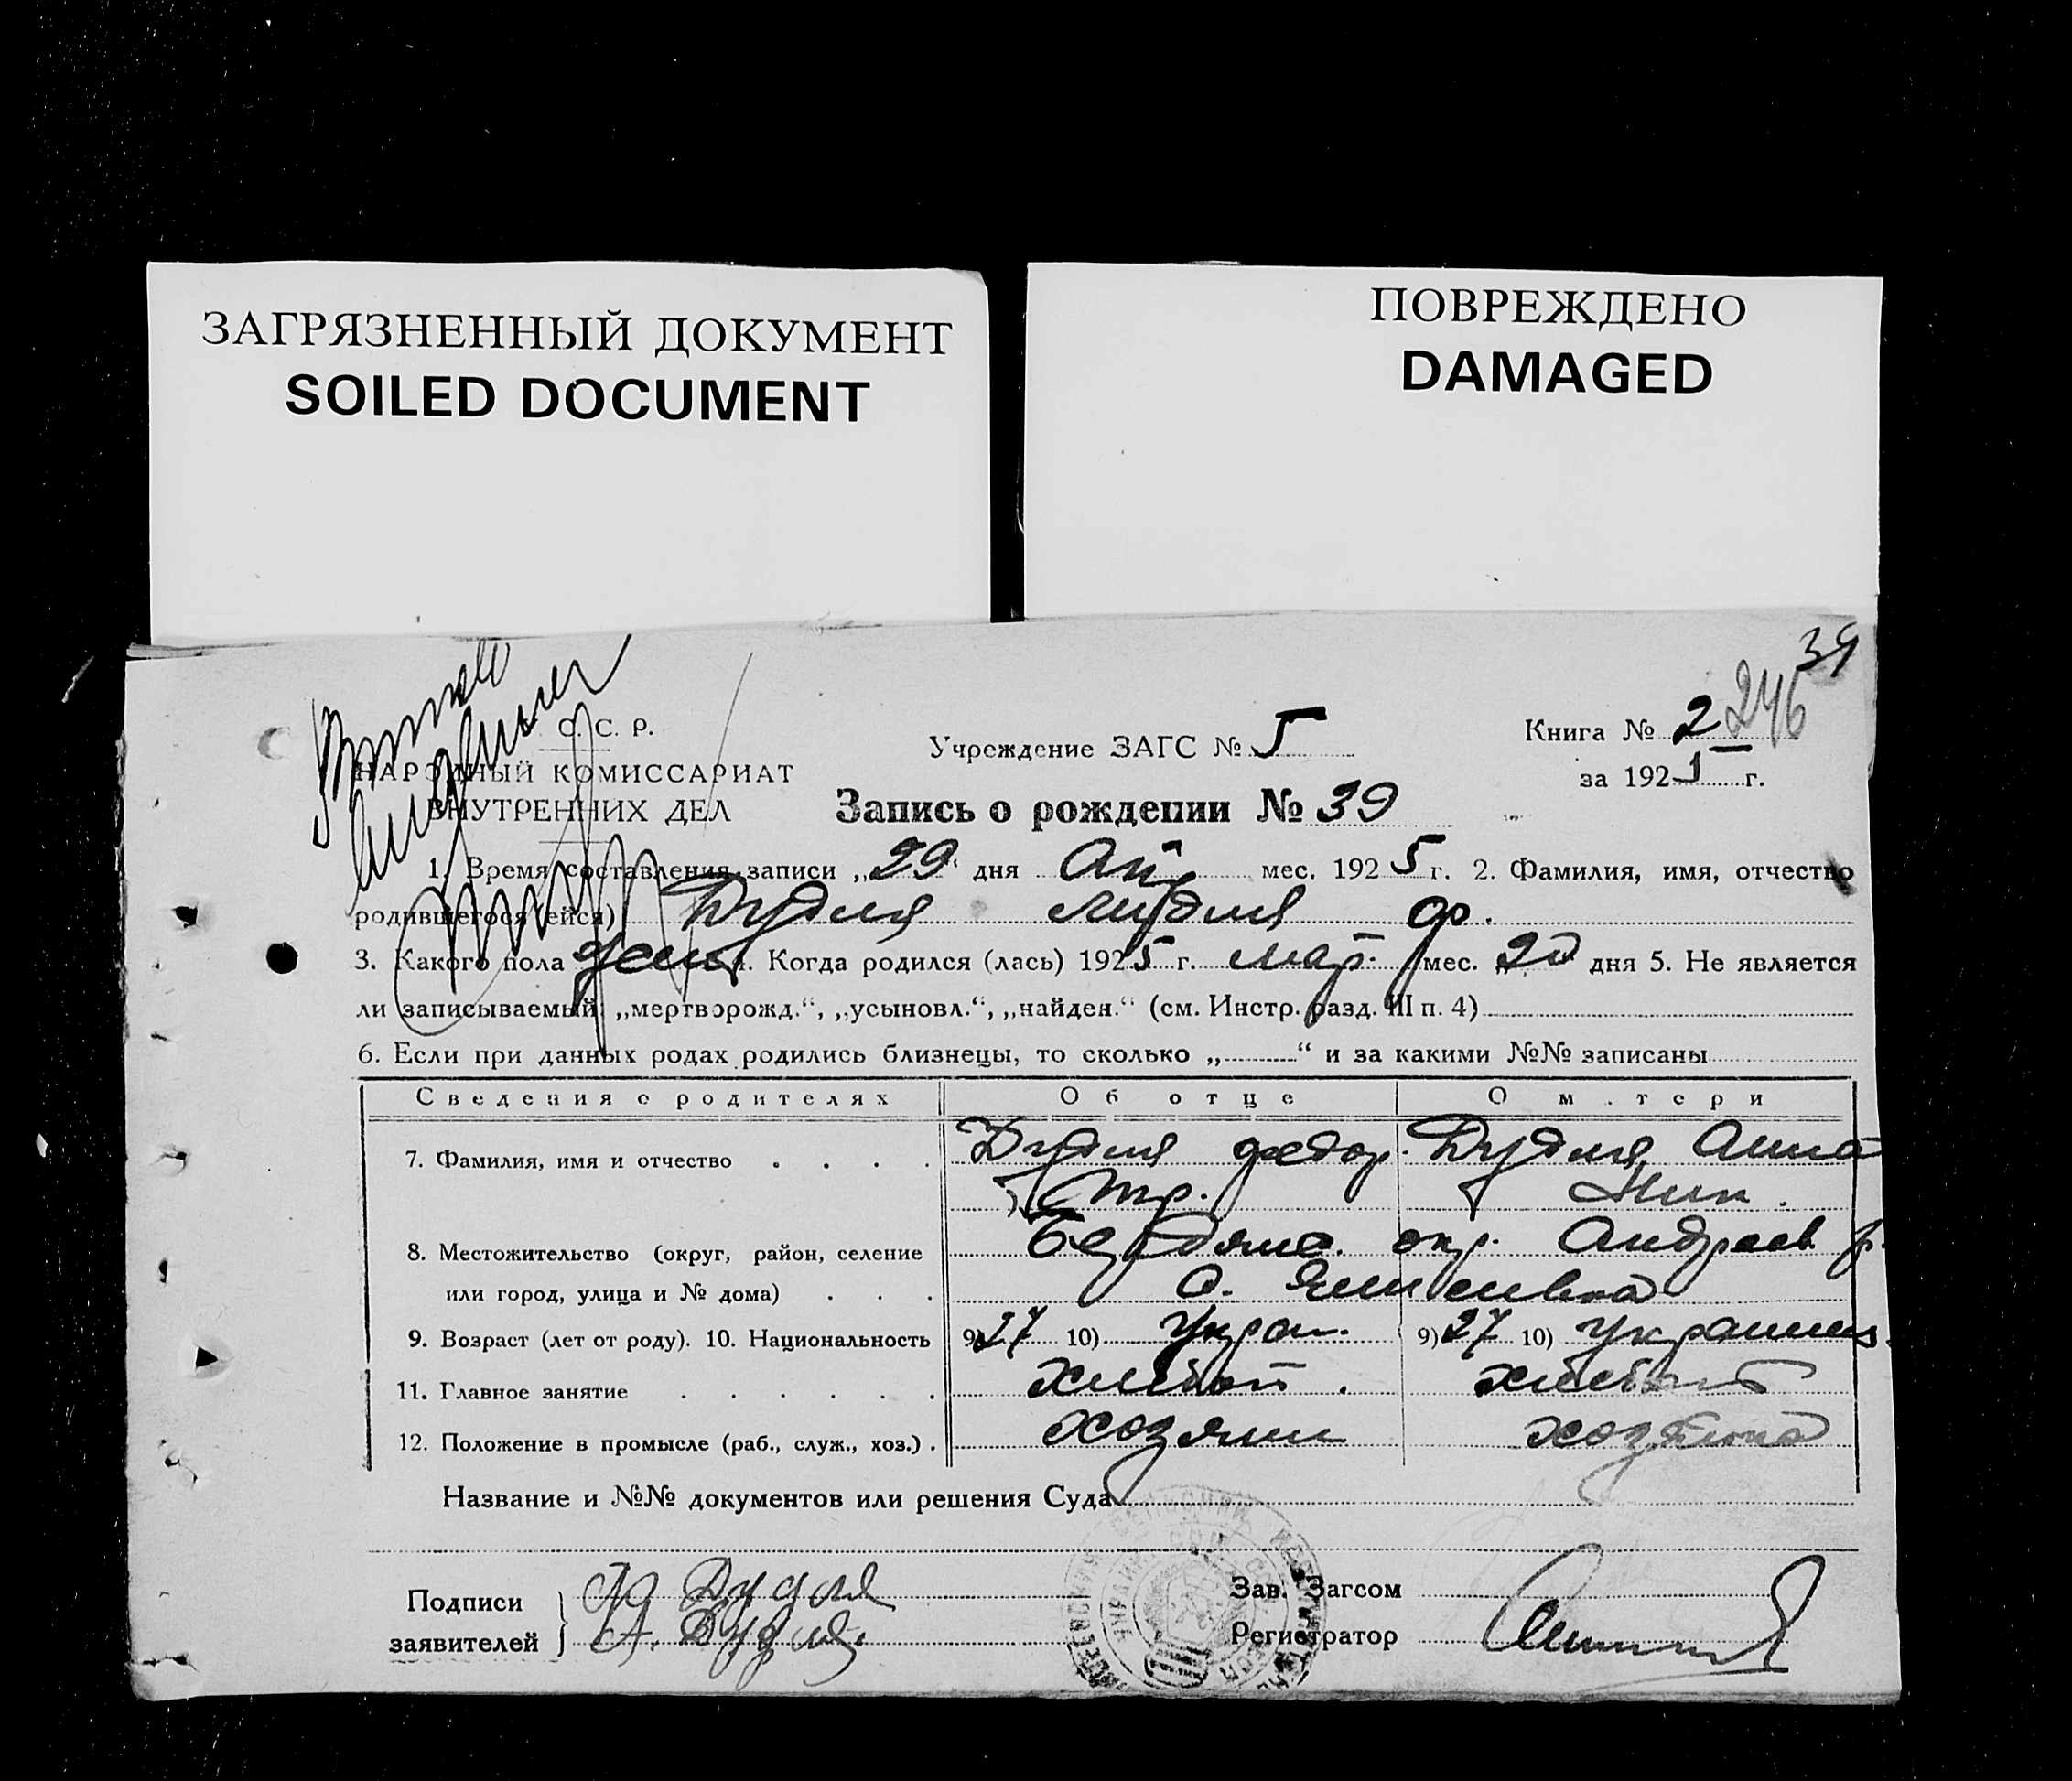 ЗАГРЯЗНЕННЫЙ ДОКУМЕНТ
SOILED DOCUMENT
ПОВРЕЖДЕНО
DAMAGED
39
246
С. С. Р.
НАРОДНЫЙ КОМИССАРИАТ
ВНУТРЕННИХ ДЕЛ
Учреждение ЗАГС № 5
Книга № 2
за 1925 г.
Запись о рождении № 39
1. Время составления записи „29" дня Апр мес. 1925 г. 2. Фамилия, имя, отчество
родившегося (ейся) Дудля Лидия Ф.
3. Какого пола жен. Когда родился (лась) 1925 г. мар. мес. 20 дня 5. Не является
ли записываемый „мертворожд.“, „усыновл.“, „найден.“ (см. Инстр. разд. III п. 4)
6. Если при данных родах родились близнецы, то сколько „ “ и за какими №№ записаны
Сведения о родителях Об отце О м.тери
7. Фамилия, имя и отчество Дудля Федор. Дудля Анна
Ник.
8. Местожительство (округ, район, селение Бердянс. окр. Андреев р.
или город, улица и № дома) с.
9. Возраст (лет от роду). 10. Национальность 9) 27 10) Украи. 9) 27 10) Украинк.
11. Главное занятие
12. Положение в промысле (раб., служ., хоз.) хозяин
Название и №№ документов или решения Суда
Подписи заявителей
Ф Дудля
А. Дудля.
Зав. Загсом
Регистратор